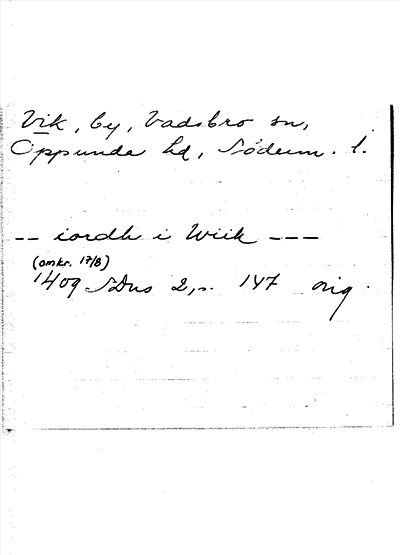 Vik, by, Vadsbro sn,
Oppunda hd, Söderm. l.
-- iordh i Wiik ---
(omkr. 17/8)
1409 SDns 2, s. 147 orig.